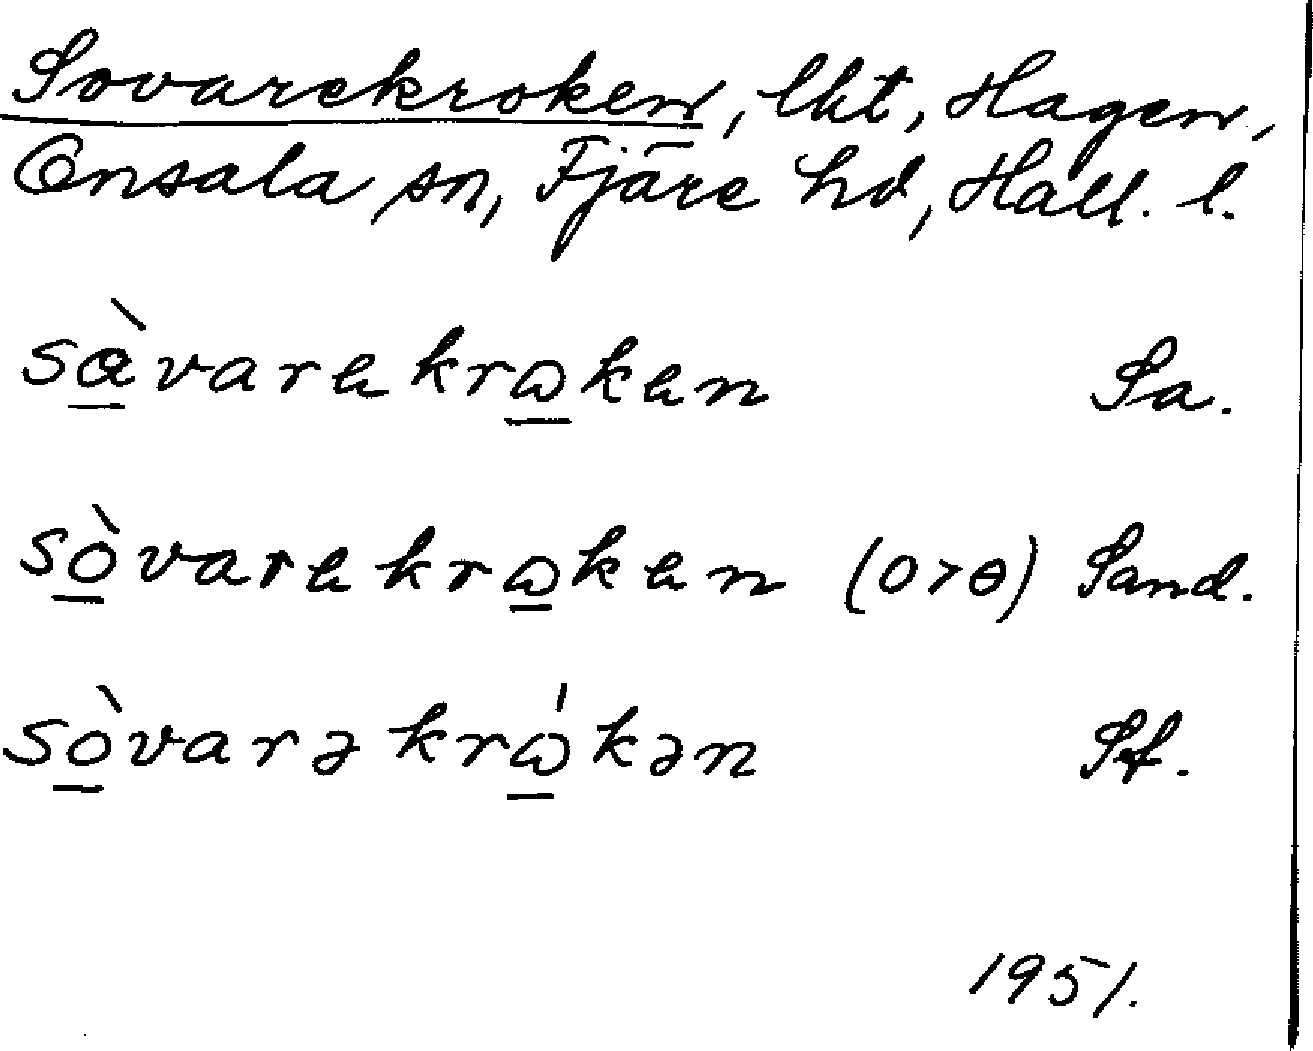 Sovarekroken, lht, Hagen,
Onsala sn, Fjäre hd, Hall. l.
sɑ̀varekrɷken Sa.
sòvarekrɷken (o>ɵ) Sand.
sòvarəkrɷ́kən Sf.
1951.